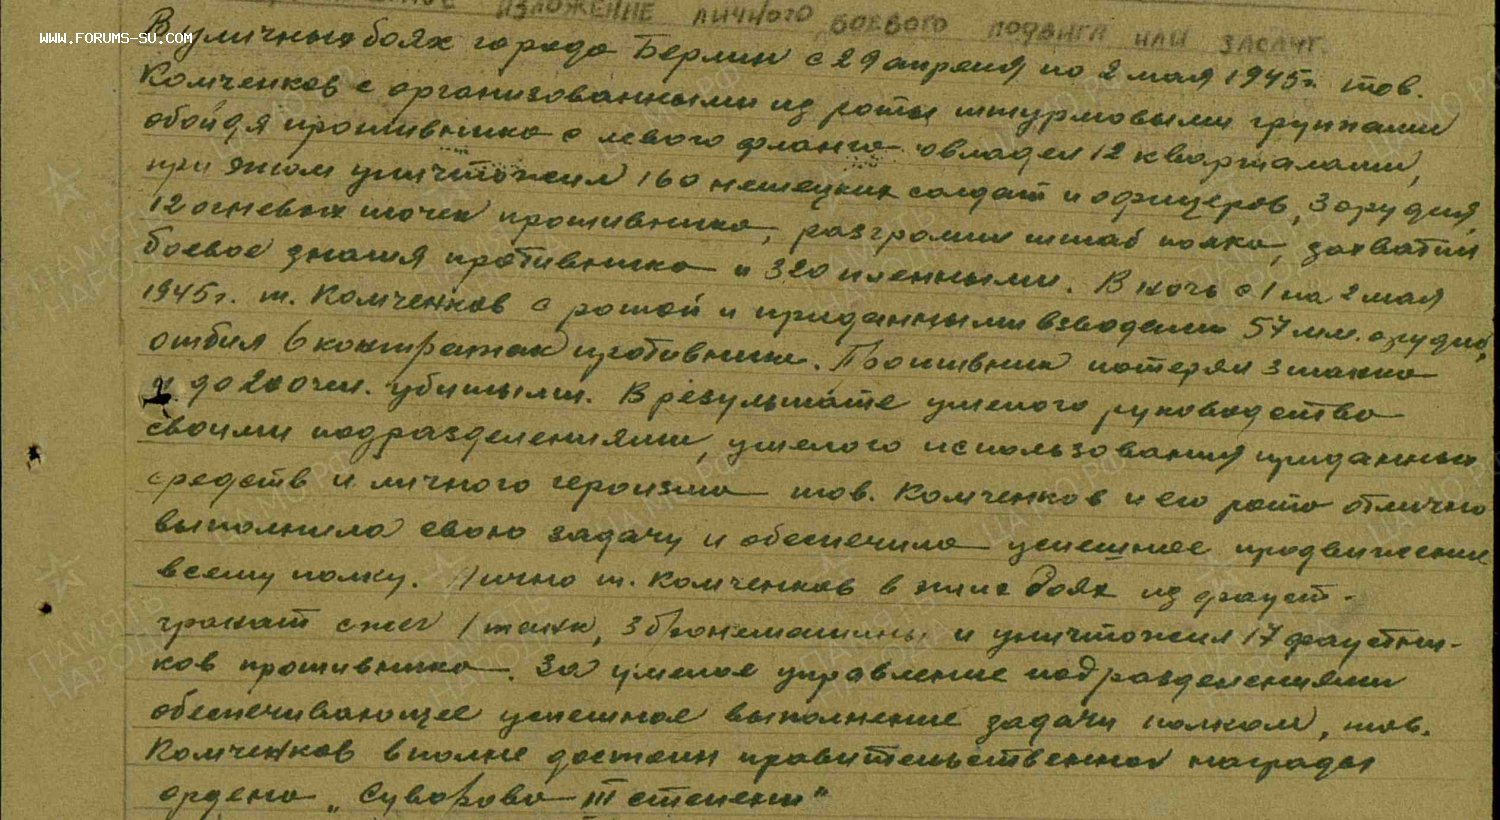 ИЗЛОЖЕНИЕ ЛИЧНОГО БОЕВОГО ПОДВИГА ИЛИ ЗАСЛУГ.
WWW.FORUMS-SU.COM
В уличных боях города Берлин с 29 апреля по 2 мая 1945г. тов.
Комченков с организованными из роты штурмовыми группами
обойдя противника с левого фланга овладел 12 кварталами,
при этом уничтожил 160 немецких солдат и офицеров, 3 орудия,
12 огневых точек противника, разгромил штаб полка, захватил
боевое знамя противника и 320 пленными. В ночь с 1 на 2 мая
1945г. т. Комченков с ротой и приданными взводами 57 мм. орудий,
отбил 6 контратак противника. Противник потерял 3 танка
и до 200 чел. убитыми. В результате умелого руководства
своими подразделениями, умелого использования приданных
средств и личного героизма тов. Комченков и его рота отлично
выполнила свою задачу и обеспечила успешное продвижение
всему полку. Лично т. Комченков в этих боях из фауст-
гранат сжег 1 танк, 3 бронемашины и уничтожил 17 фаустни-
ков противника. За умелое управление подразделениями
обеспечивающее успешное выполнение задачи полком, тов.
Комченков вполне достоин правительственной награды
ордена „Суворова III степени"
ПАМЯТЬ НАРОДА
ЦАМО РФ